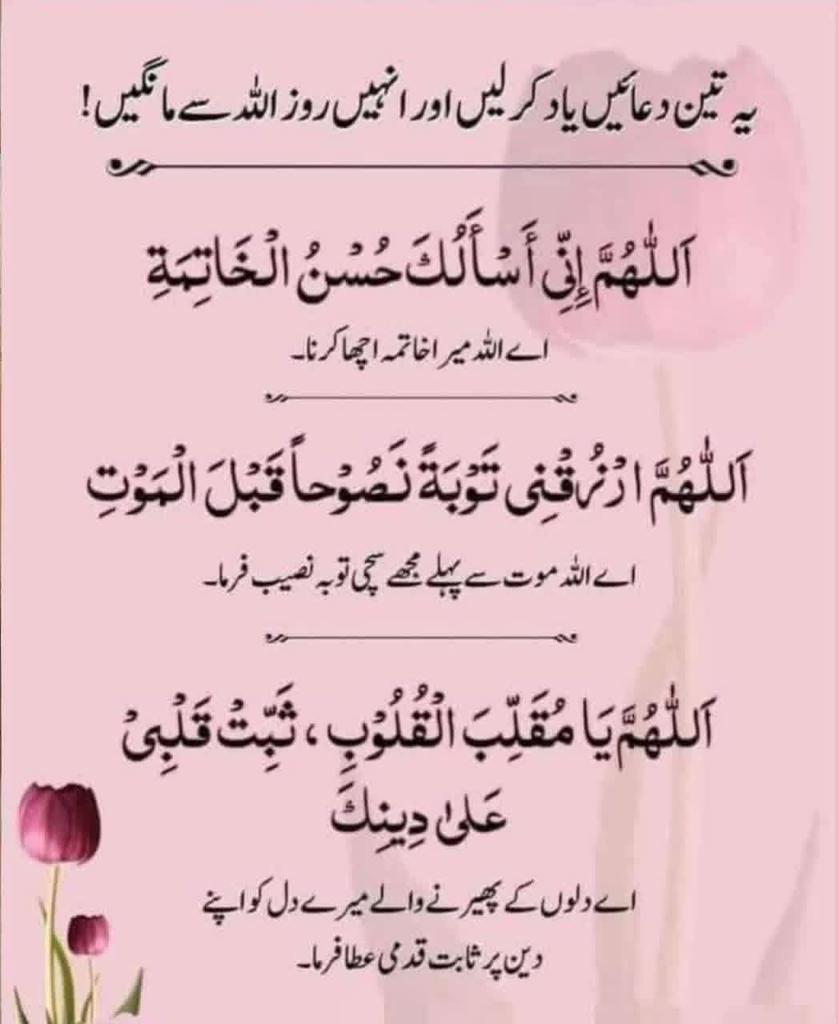 یہ تین دعائیں یاد کر لیں اور انہیں روز اللہ سے مانگیں!
اَللّٰهُمَّ إِنِّي أَسْأَلُكَ حُسْنُ الْخَاتِمَةِ
اے اللہ میرا خاتمہ اچھا کرنا۔
اَللّٰهُمَّ ارْزُقْنِی تَوْبَةً نَصُوْحاً قَبْلَ الْمَوْتِ
اے اللہ موت سے پہلے مجھے سچی توبہ نصیب فرما۔
اَللّٰهُمَّ يَا مُقَلِّبَ الْقُلُوْبِ، ثَبِّتْ قَلْبِیْ
عَلیٰ دِيِنِكَ
اے دلوں کے پھیرنے والے میرے دل کو اپنے
دین پر ثابت قدمی عطا فرما۔